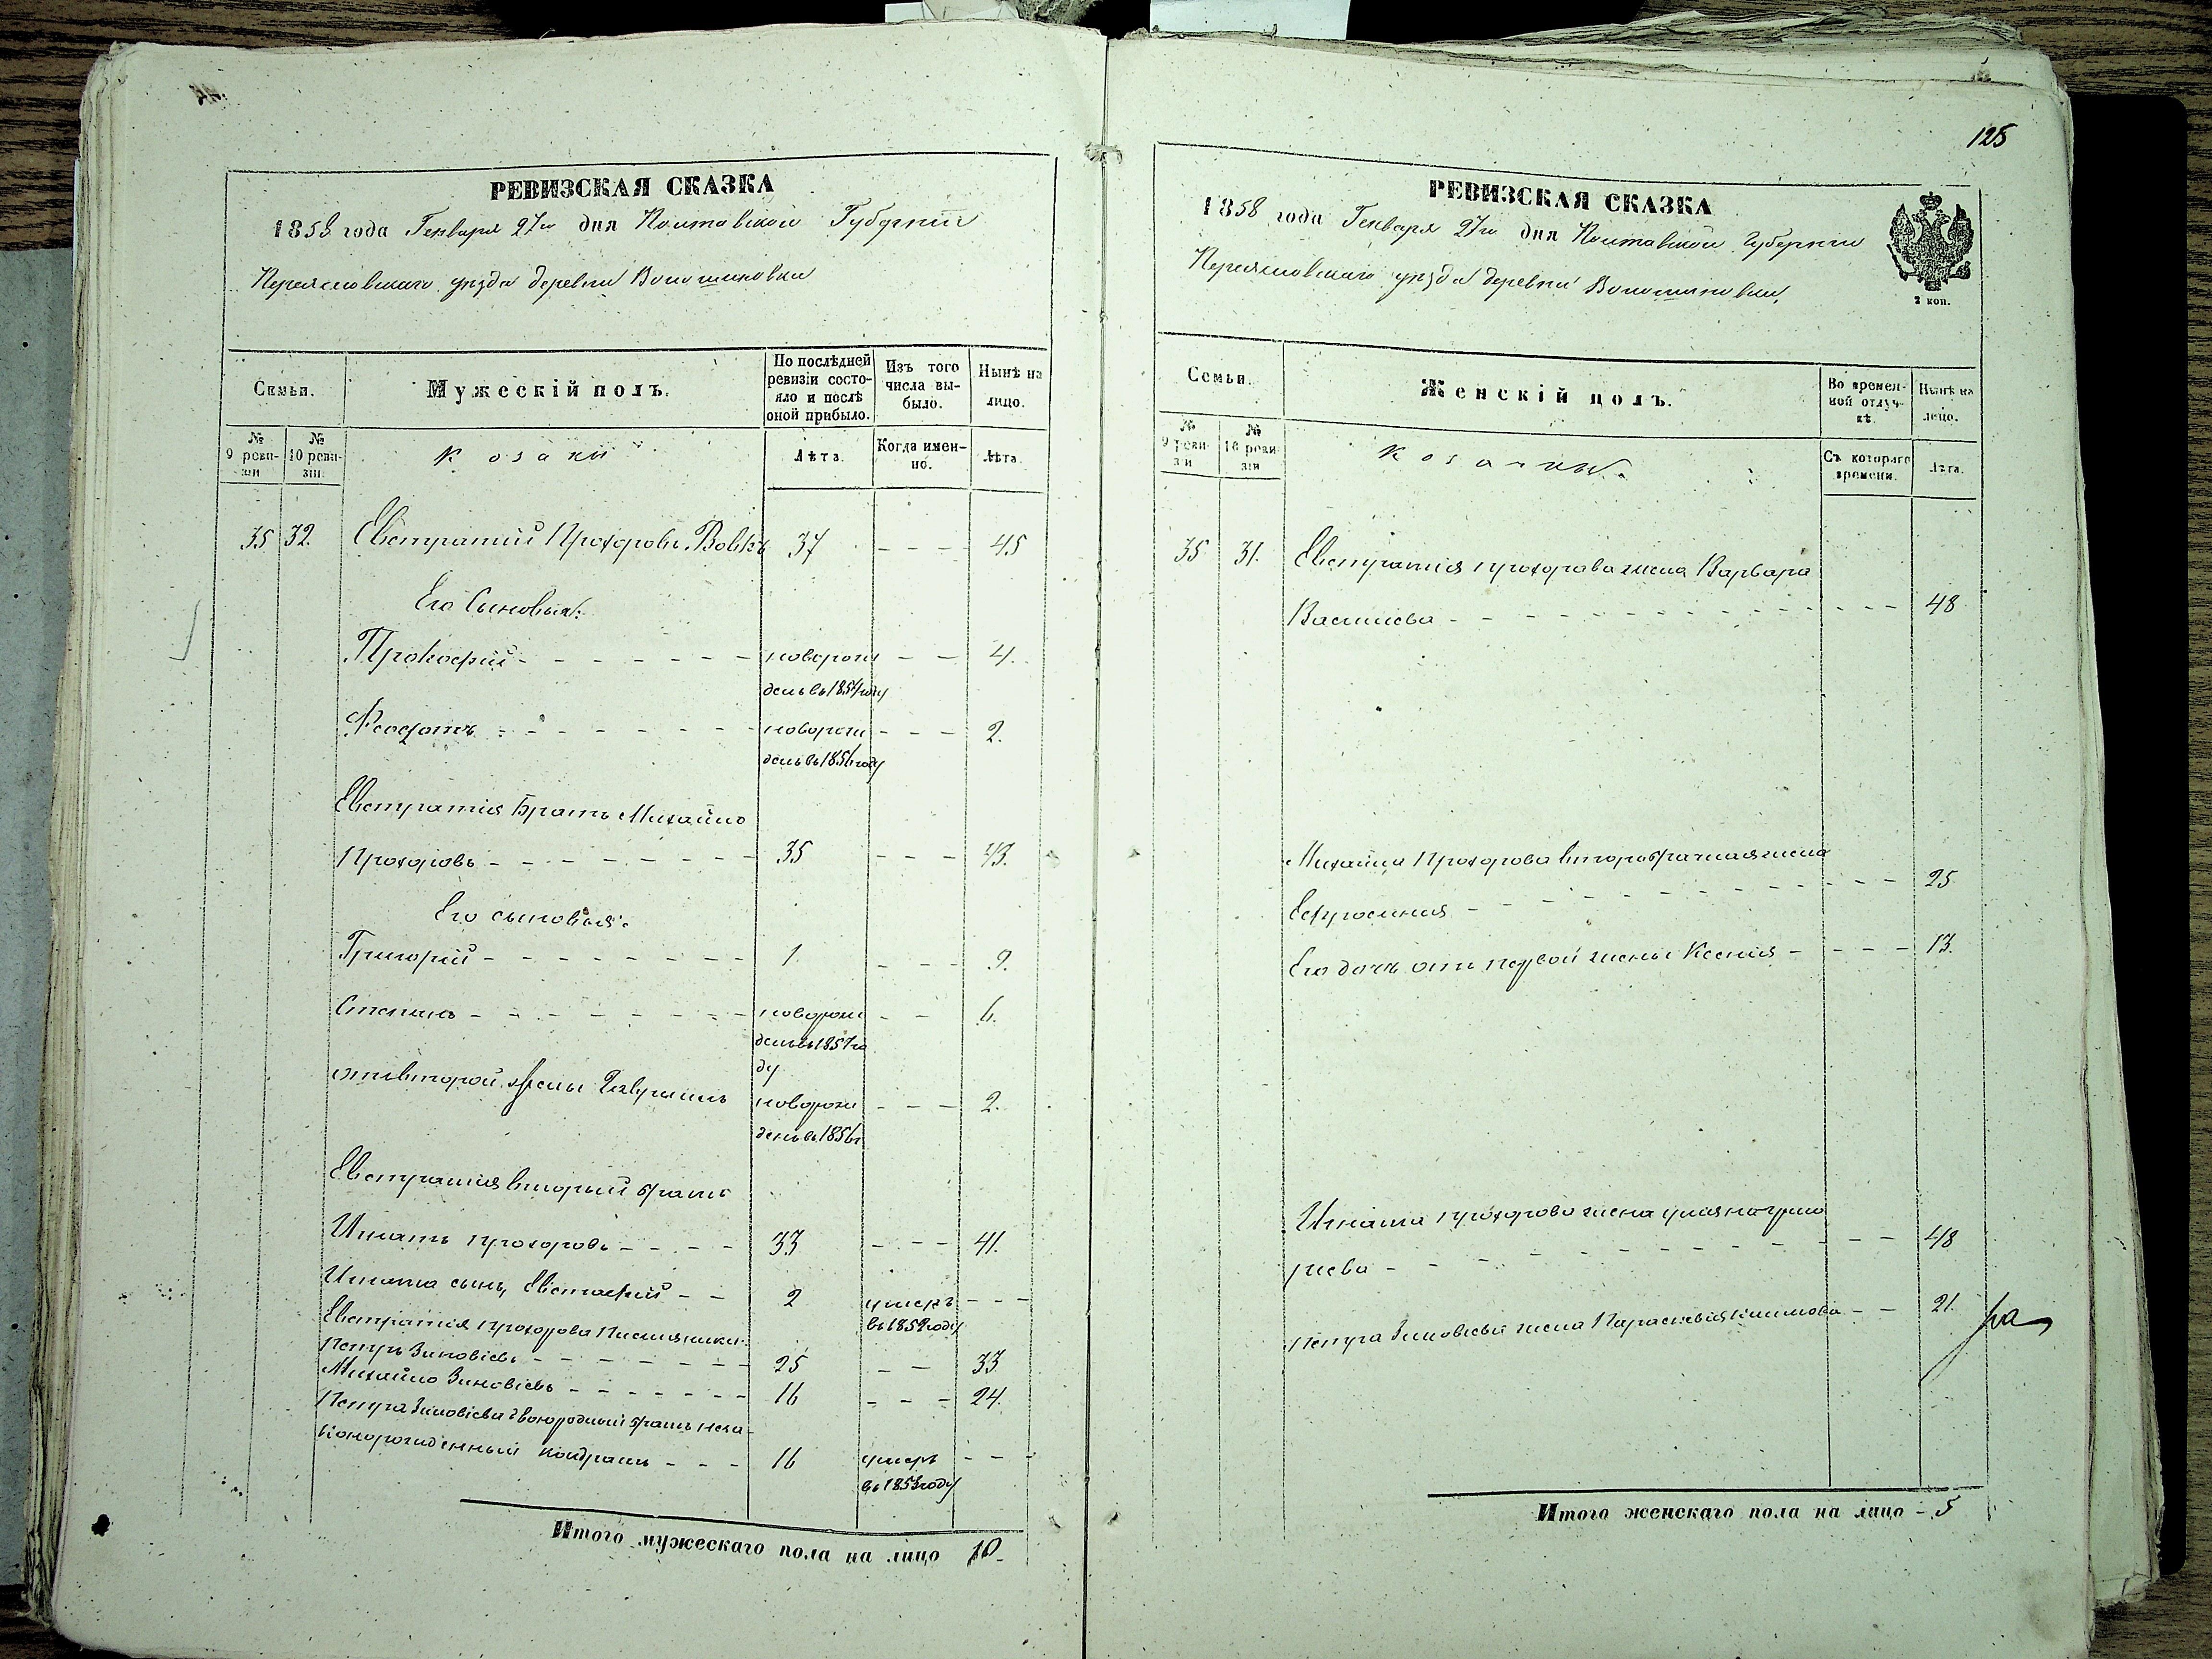 РЕВИЗСКАЯ СКАЗКА
1858 года Генваря 27го дня Полтавской Губернии
Переяславскаго уезда деревни Волошиновки
Семьи.
Мужескій полъ.
По послѣдней ревизіи состояло и послѣ оной прибыло.
Изъ того числа вы-было.
Нынѣ на лицо.
№ 9 реви-зіи
№ 10 реви-зіи.
Козаки
Лѣта.
Когда имен-но.
Лѣта.
35 32. Евстратий Прохоровъ Вовкъ 37 - - - 45
Его Сыновья:
Прокофий - - - - - - - новорож - - 4.
денъ въ 1854 году
Феодотъ - - - - - - - новорож - - - 2.
денъ въ 1856 году
Евстратія Братъ Михайло
Прохоровъ - - - - - - - 35 - - - 43.
Его сыновья:
Григорій - - - - - - - - 1 - - - 9.
Степанъ - - - - - - - - новорож - - 6.
денъ въ 1851 го
ду
отъ второй жены Гавриилъ новорож - - - 2.
денъ въ 1856 г
Евстратия вторый братъ
Игнатъ Прохоровъ - - - - 33 - - - 41.
Игната сынъ, Евстафий - - 2 умеръ - - -
въ 1852 году
Евстратія Прохорова Племянники:
Петръ Зиновіевъ - - - - - - - 25 - - 33
Михайло Зиновіевъ - - - - - - - 16 - - - 24.
Петра Зиновіева двоюродный братъ неза-
конорожденный Кондратъ - - - 16 умеръ - - -
въ 1853 году
Итого мужескаго пола на лицо 10.
125
РЕВИЗСКАЯ СКАЗКА
1858 года Генваря 27го дня Полтавской Губернии
Переяславскаго уезда деревни Волошиновки,
2 коп.
Семьи.
Женскій полъ.
Во времен-ной отлуч-кѣ.
Нынѣ на лицо.
№ 9 реви-зіи
№ 10 реви-зіи
Козачки
Съ котораго времени.
Лѣта.
35 31. Евстратія Прохорова жена Варвара
Васильева - - - - - - - - - - - - - 48
Михайла Прохорова второбрачная жена
Ефросиния - - - - - - - - - - - 25
Его дочь отъ первой жены Ксения - - - - 13.
Игната Прохорова жена Улияна Григо
риева - - - - - - - - - - - 48
Петра Зиновіева жена Параскевия Климова - - 21.
Итого женскаго пола на лицо - 5